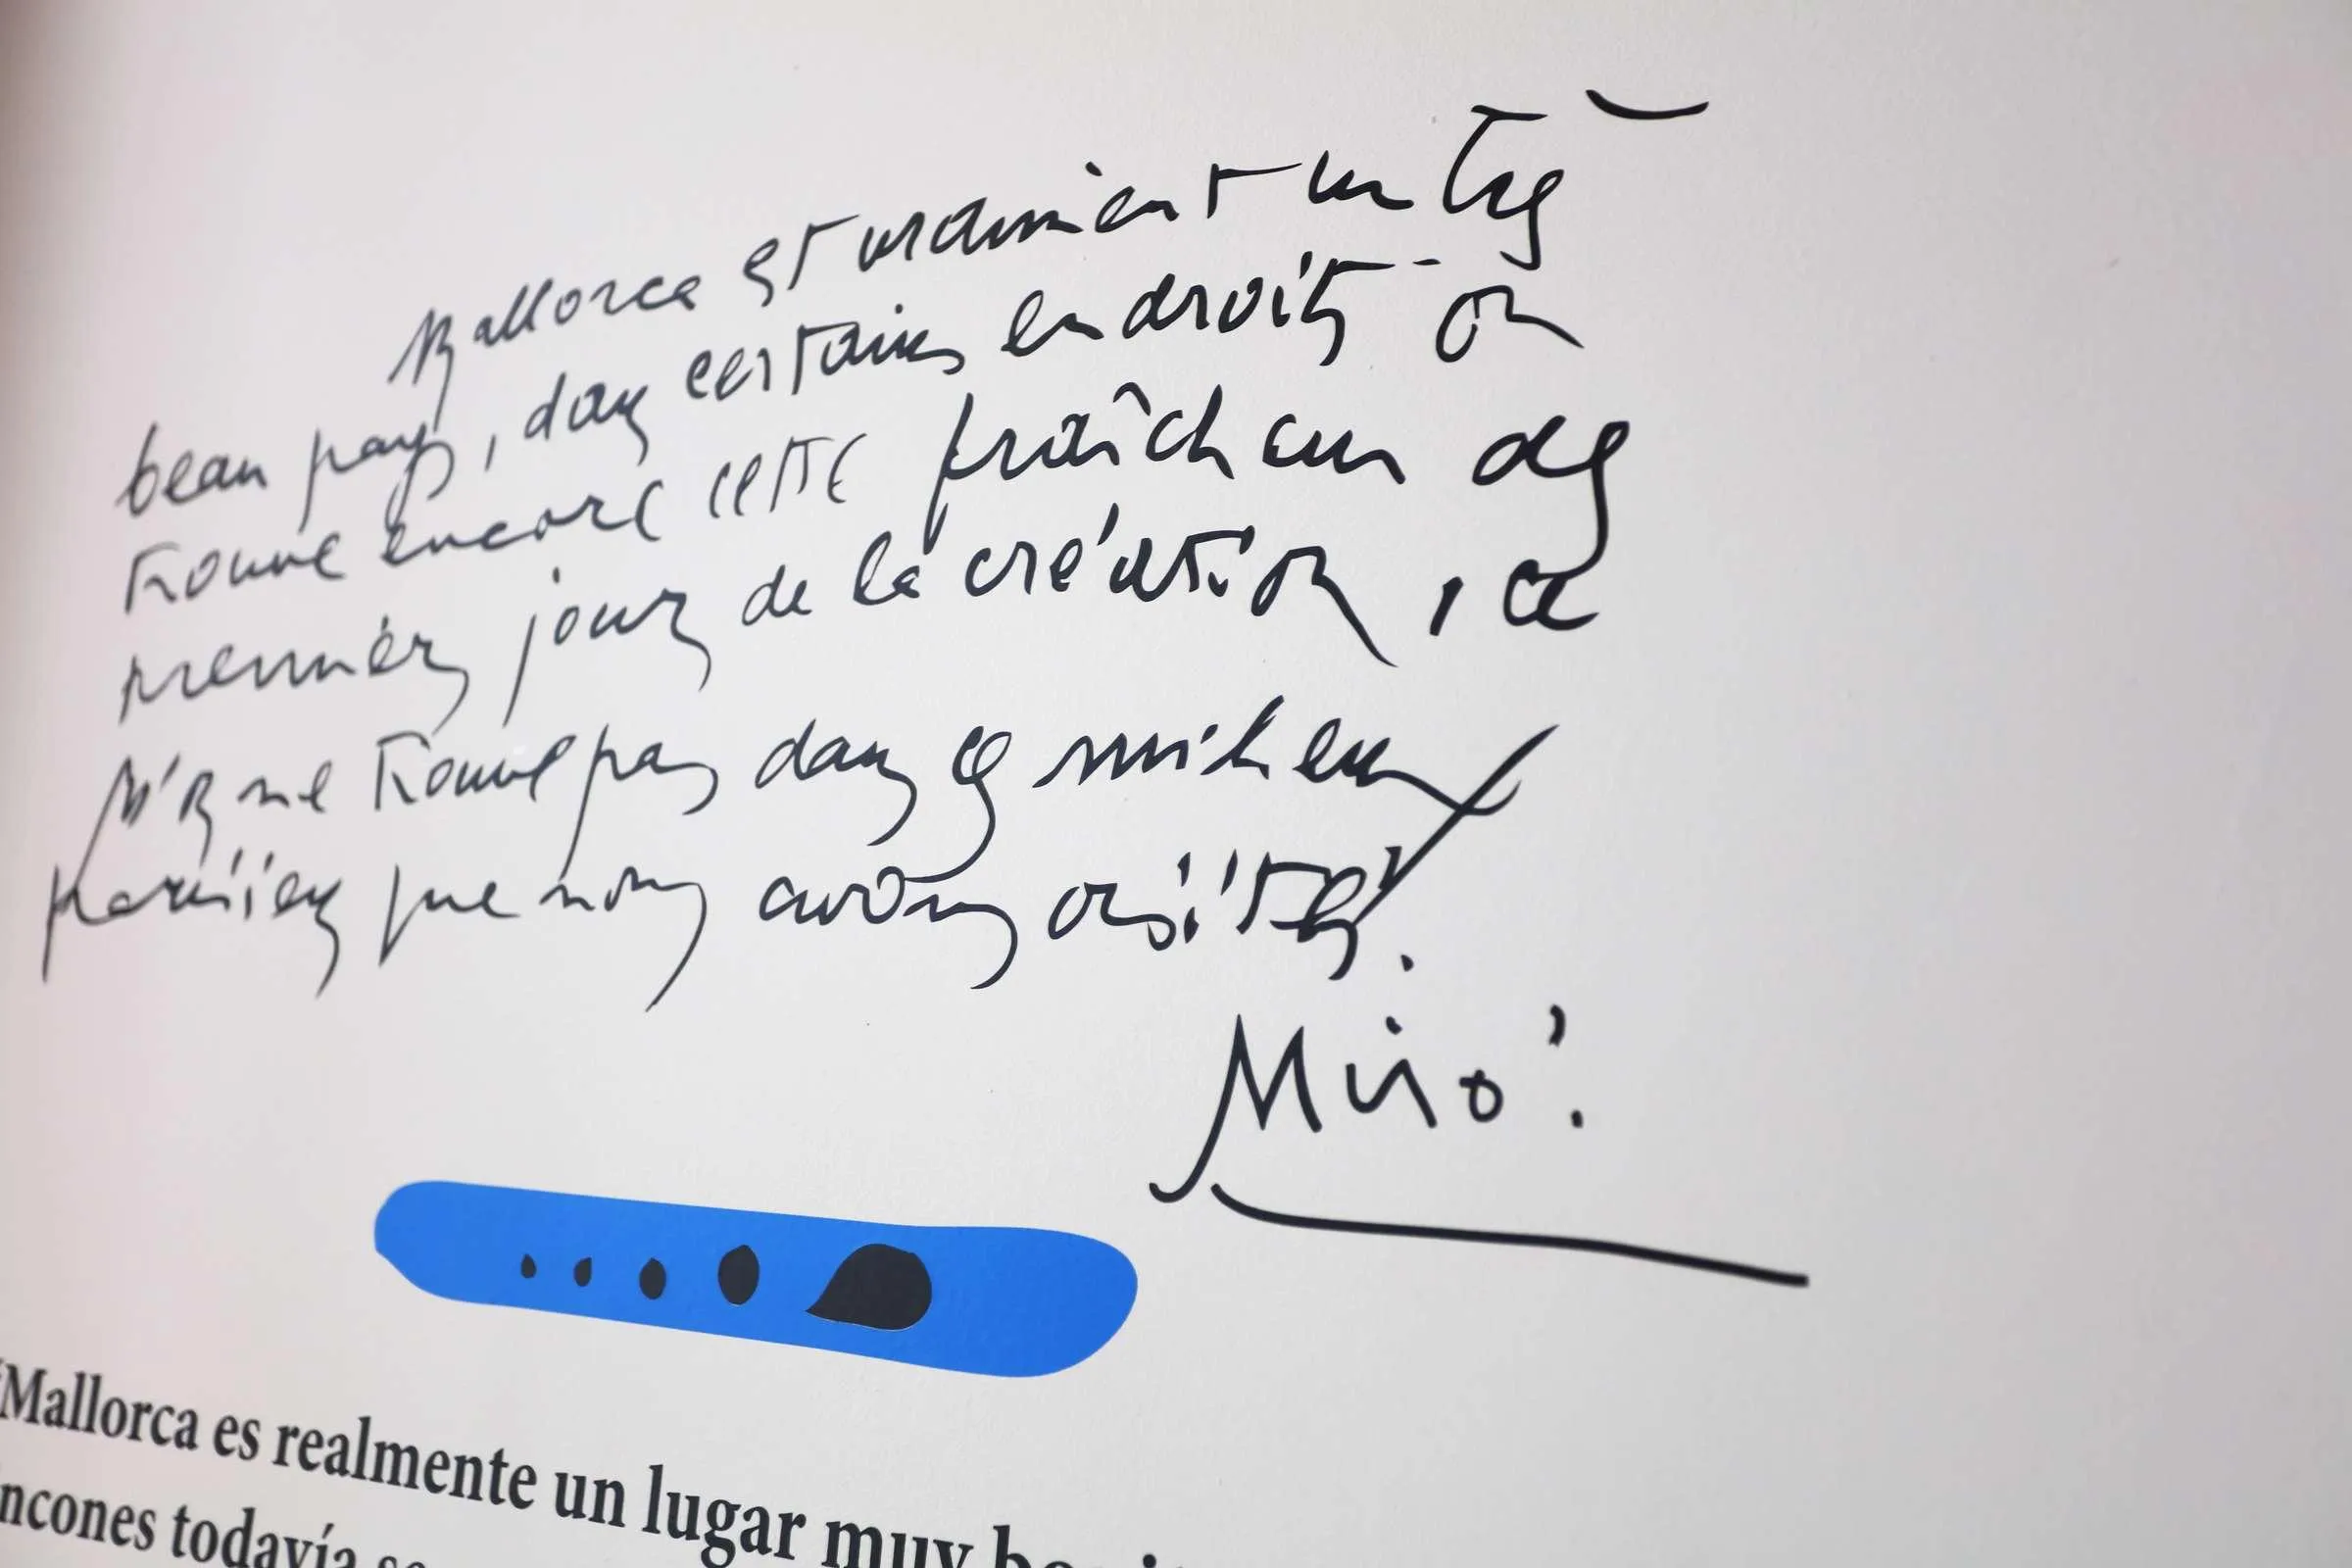 Mallorca est vraiment un très
beau pays, dans certains endroits on
trouve encore cette fraîcheur des
premièrs jours de la création, ce
qu'on ne trouve pas dans ces milieux
parisiens que nous avons visités.
Miró.
“Mallorca es realmente un lugar muy
incones todavía se